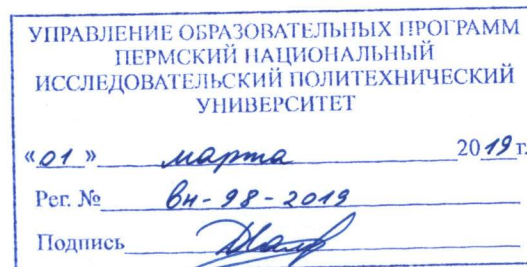 УПРАВЛЕНИЕ ОБРАЗОВАТЕЛЬНЫХ ПРОГРАММ
ПЕРМСКИЙ НАЦИОНАЛЬНЫЙ
ИССЛЕДОВАТЕЛЬСКИЙ ПОЛИТЕХНИЧЕСКИЙ
УНИВЕРСИТЕТ
«01» марта 2019 г.
Рег. № вн-98-2019
Подпись